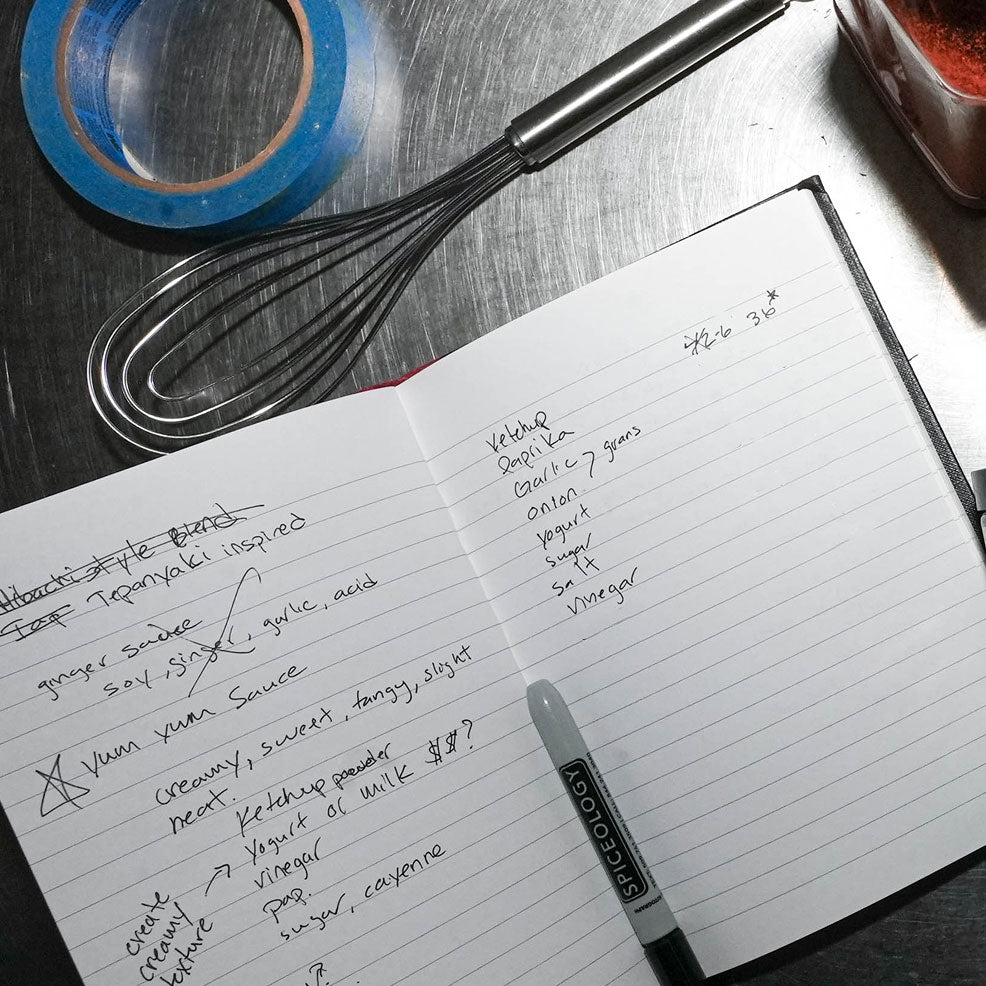 Hibachi style Blend
Tap Tepanyaki inspired
ginger sauce
soy, ginger, garlic, acid
Yum Yum Sauce
creamy, sweet, tangy, slight
heat.
Ketchup powder
Yogurt or milk $$?
vinegar
pap.
sugar, cayenne
create
creamy
texture
36*
Ketchup
Paprika
Garlic > grans
onion
yogurt
sugar
salt
vinegar
SPICEOLOGY